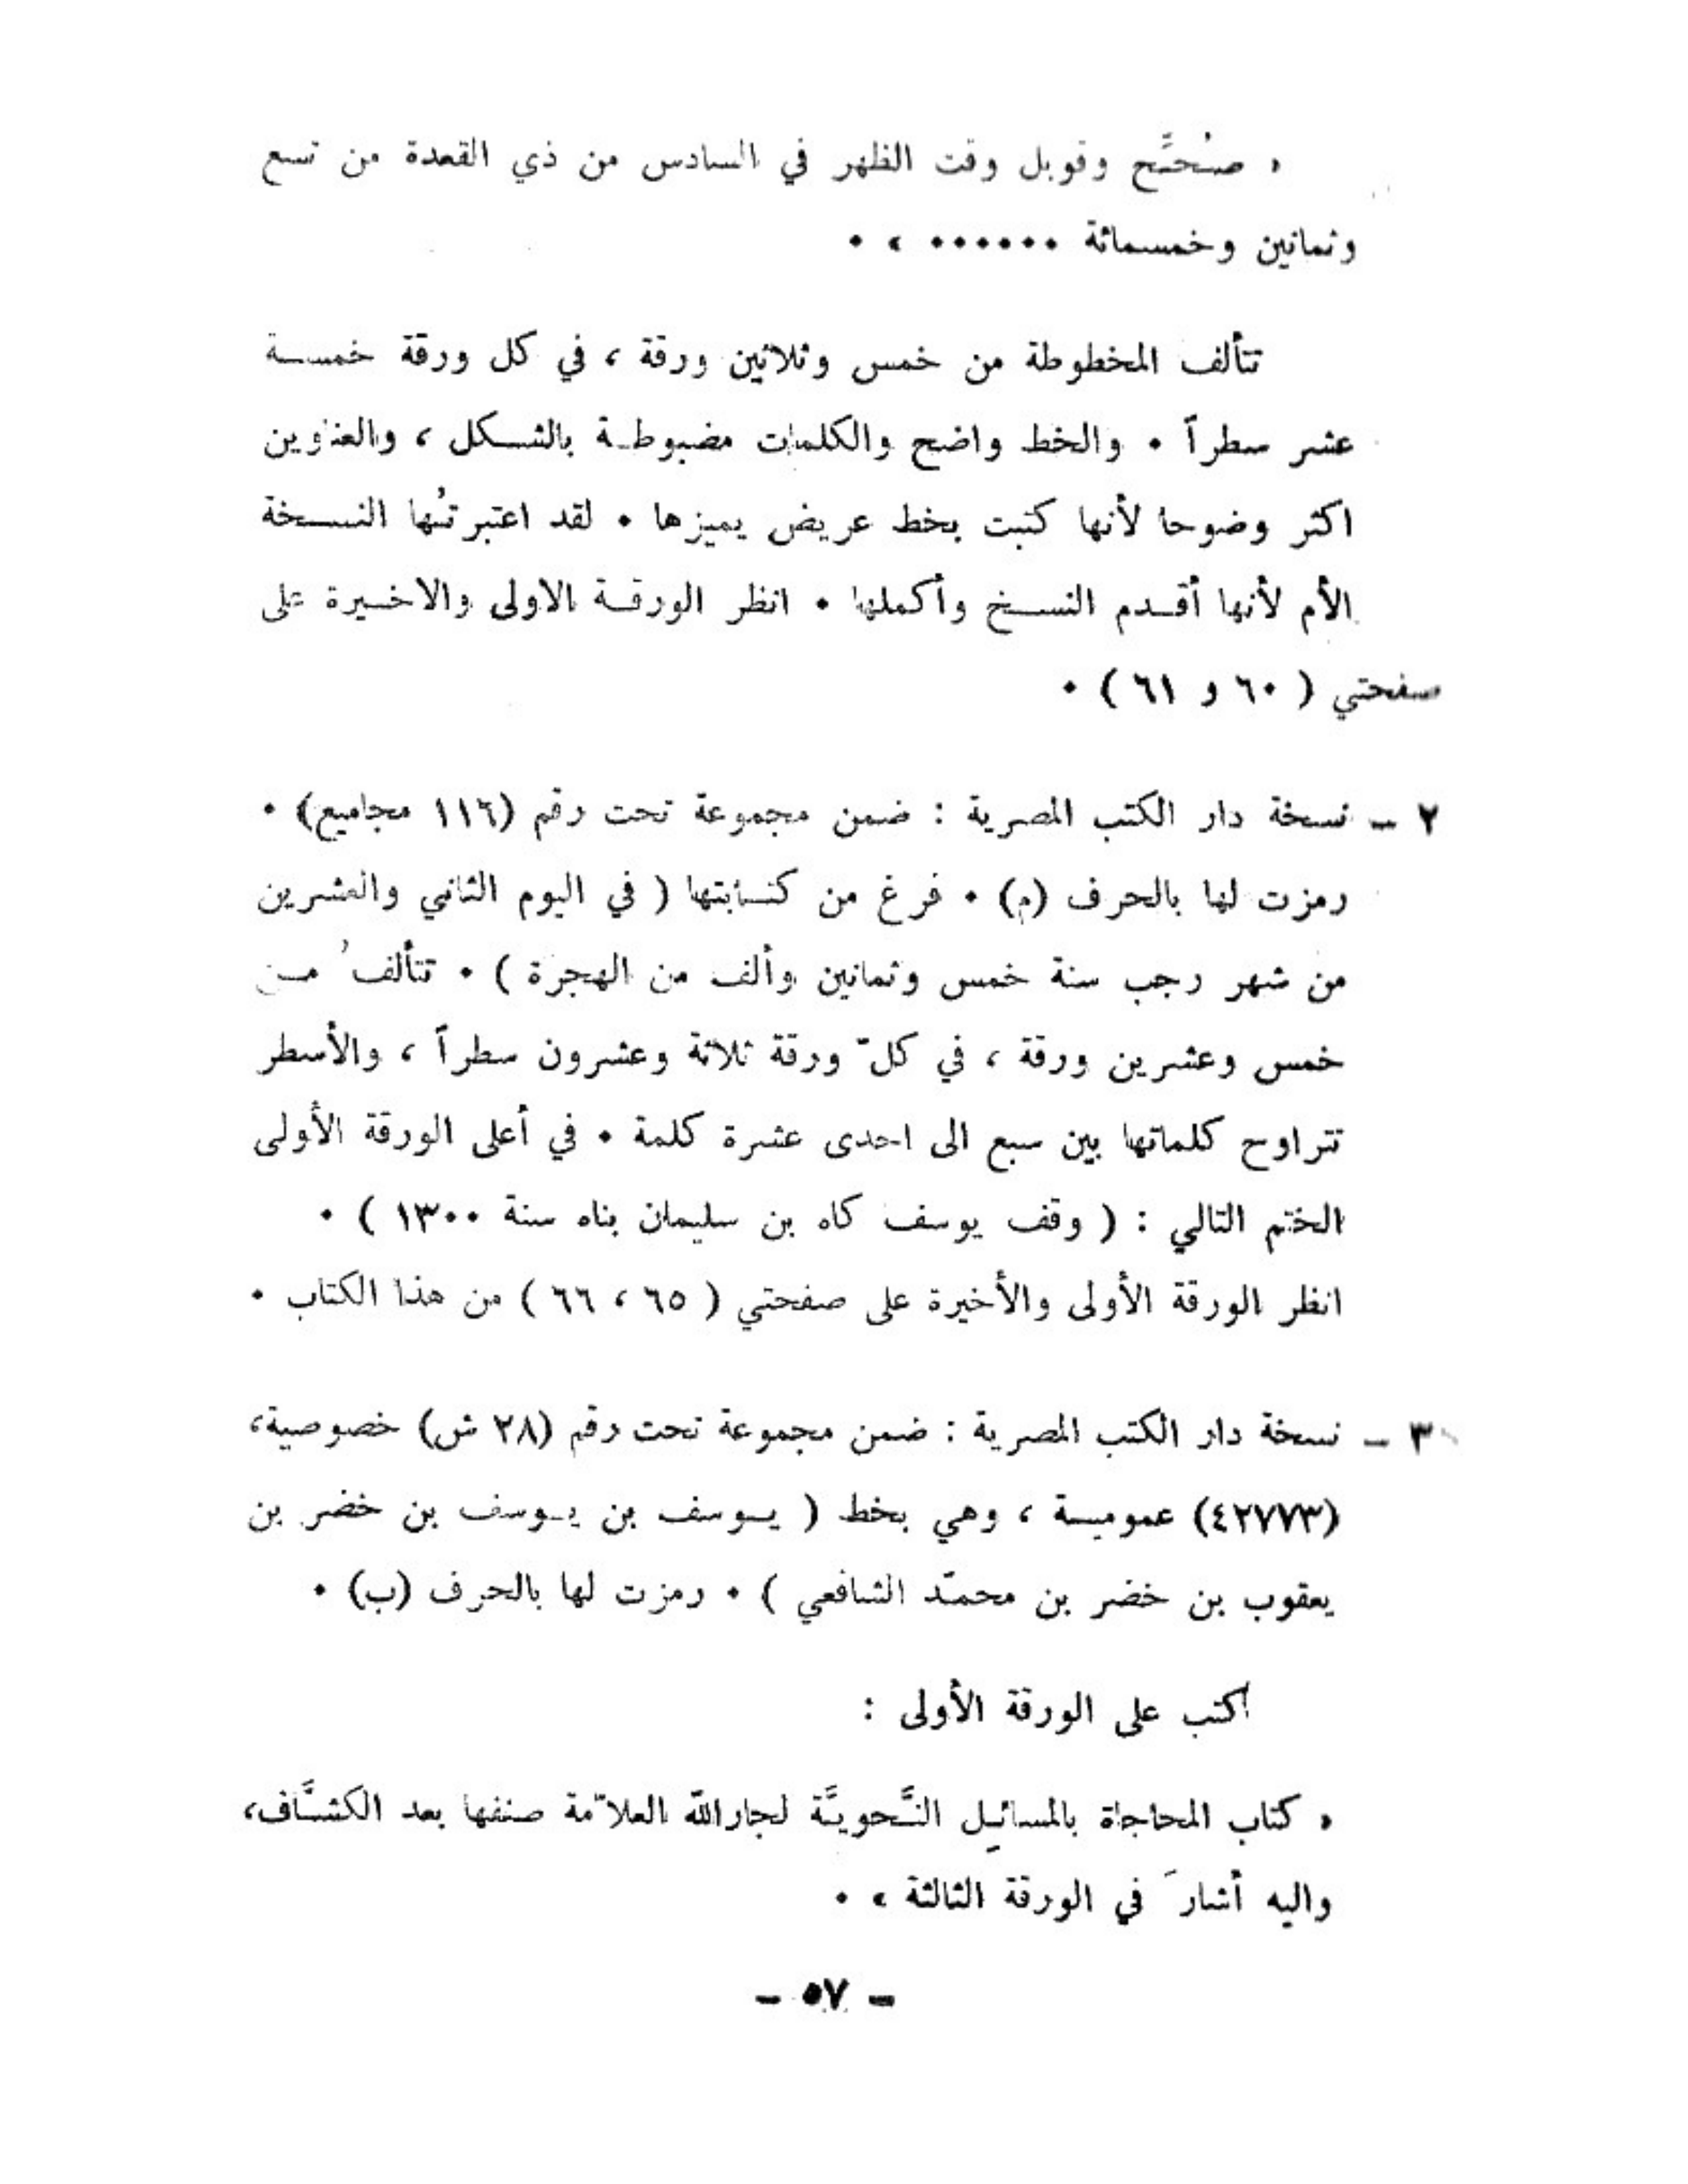 « صُحِّح وقوبل وقت الظهر في السادس من ذي القعدة من تسع
وثمانين وخمسمائة ...... » .
تتألف المخطوطة من خمس وثلاثين ورقة ، في كل ورقة خمسة
عشر سطراً . والخط واضح والكلمات مضبوطة بالشكل ، والعناوين
اكثر وضوحا لأنها كتبت بخط عريض يميزها . لقد اعتبرتُها النسخة
الأم لأنها أقدم النسخ وأكملها . انظر الورقة الاولى والاخيرة على
صفحتي ( ٦٠ و ٦١ ) .
٢ – نسخة دار الكتب المصرية : ضمن مجموعة تحت رقم (١١٦ مجاميع) .
رمزت لها بالحرف (م) . فرغ من كتابتها ( في اليوم الثاني والعشرين
من شهر رجب سنة خمس وثمانين وألف من الهجرة ) . تتألفُ من
خمس وعشرين ورقة ، في كلّ ورقة ثلاثة وعشرون سطراً ، والأسطر
تتراوح كلماتها بين سبع الى احدى عشرة كلمة . في أعلى الورقة الأولى
الختم التالي : ( وقف يوسف كاه بن سليمان بناه سنة ١٣٠٠ ) .
انظر الورقة الأولى والأخيرة على صفحتي ( ٦٥ ، ٦٦ ) من هذا الكتاب .
٣ – نسخة دار الكتب المصرية : ضمن مجموعة تحت رقم (٢٨ ش) خصوصية،
(٤٢٧٧٣) عمومية ، وهي بخط ( يوسف بن يوسف بن خضر بن
يعقوب بن خضر بن محمّد الشافعي ) . رمزت لها بالحرف (ب) .
كتب على الورقة الأولى :
« كتاب المحاجاة بالمسائِل النَّحويَّة لجارالله العلاّمة صنفها بعد الكشَّاف،
واليه أشارَ في الورقة الثالثة » .
– ٥٧ –